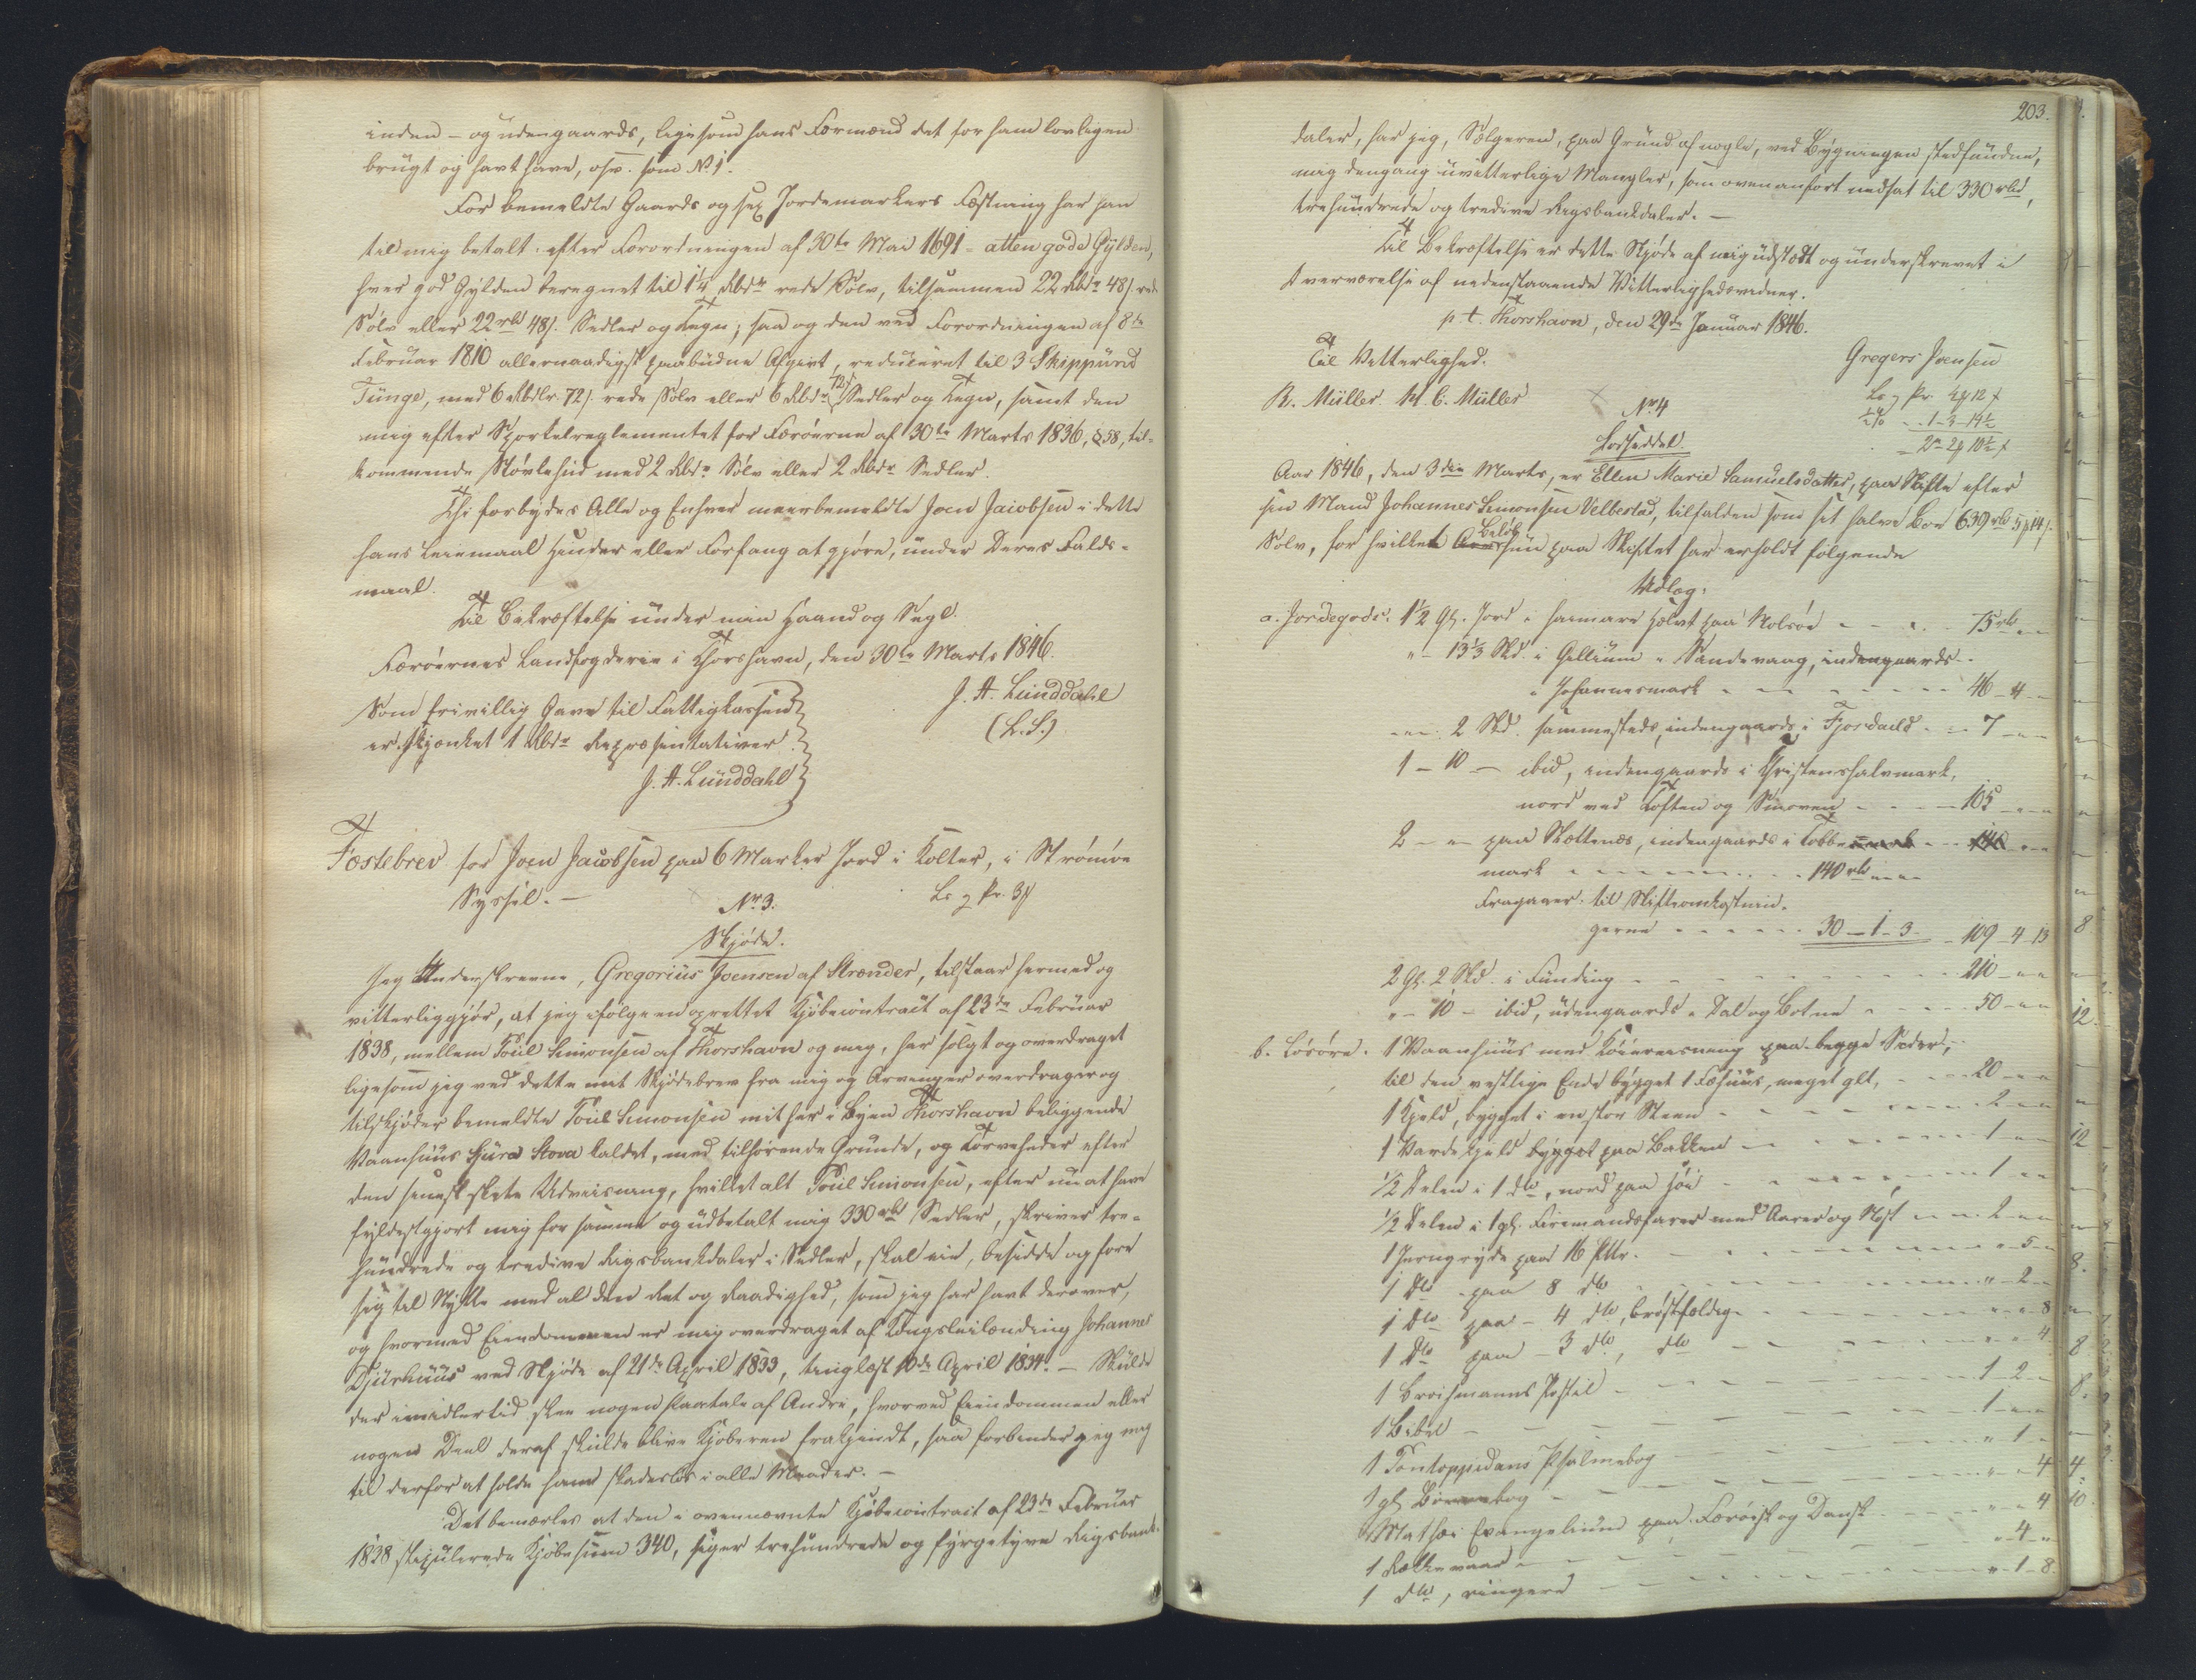 inden- og udengaards, ligesom hans Formænd det for ham lovligen
brugt og havt have, osv. som No 1.
For bemeldte Gaards og sex Jordemarkers Fæstning har han
til mig betalt, efter Forordningen af 30te Mai 1691 - atten gode Gylden,
hver god Gylden beregnet til 1¼ Rbdr rede Sølv, tilsammen 22 Rbdr 48 s. rede
Sølv eller 22 rbd 48 s. Sedler og Tegn; saa og den ved Forordningen af 8de
Februar 1810 allernaadigst paabudne Afgivt, reduceret til 3 Skippund
Tünge, med 6 Rbdlr. 72 s. rede Sølv eller 6 Rbdr 72 s. Sedler og Tegn, samt den
mig efter Sportelreglementet for Færøerne af 30te Marts 1836, § 58, til-
kommende Støvlehud med 2 Rbdr Sølv eller 2 Rbdr Sedler.
Thi forbydes Alle og Enhver meerbemeldte Joen Jacobsen i dette
hans Leiemaal Hinder eller Forfang at gjøre, under Deres Falds-
maal.
Til Bekræftelse under min Haand og Segl.
Færøernes Landfogderie i Thorshavn, den 30te Marts 1846.
J. A. Lünddahl
(L.S.)
Som frivillig Gave til Fattigkassen
er skjænket 1 Rbdr Repræsentativer
J. A. Lünddahl
Fæstebrev for Joen Jacobsen paa 6 Marker Jord i Kolter, i Strömöe
Syssel. -
No 3.
Skjøde.
Jeg Underskrevne, Gregorius Joensen af Strænder, tilstaar hermed og
vitterliggjør, at jeg ifølge en oprettet Kjøbecontract af 23de Februar
1838, mellem Poul Simonsen af Thorshavn og mig, har solgt og overdraget
ligesom jeg ved dette mit Skjødebrev fra mig og Arvinger overdrager og
tilskjøder bemeldte Poul Simonsen mit her i Byen Thorshavn beliggende
Vaanhuus Sjúrd Stova kaldet, med tilhørende Grunde, og Tørveheder efter
den seneste skete Udviisning, hvilket alt Poul Simonsen, efter nu at have
fyldestgjort mig for samme og udbetalt mig 330 rbd Sedler, skriver tre-
hundrede og tredive Rigsbankdaler i Sedler, skal eie, besidde og føre
sig til Nytte med al den Ret og Raadighed, som jeg har havt derover,
og hvormed Eiendommen er mig overdraget af Kongsleilænding Johannes
Djúrhúús ved Skjøde af 21de April 1833, tinglæst 10de April 1834. - Skulde
der imidlertid skee nogen Paatale af Andre, hvorved Eiendommen eller
nogen Deel deraf skulde blive Kjøberen frakjendt, saa forbinder jeg mig
til derfor at holde ham skadesløs i alle Maader. -
Det bemærkes at den i ovennævnte Kjøbecontract af 23de Februar
1838 stipulerede Kjøbesum 340, siger trehundrede og fyrgetyve Rigsbank-
203.
daler, har jeg, Sælgeren, paa Grund af nogle, ved Bygningen stedfundne,
mig dengang uvitterlige Mangler, som ovenanført nedsat til 330 rbd,
trehundrede og tredive Rigsbankdaler. -
Til Bekræftelse er dette Skjøde af mig udstedt og underskrevet i
Overværelse af nedenstaaende Vitterlighedsvidner.
p.t. Thorshavn, den 29de Januar 1846.
Til Vitterlighed.
Gregers Joensen
R. Müller. H. C. Müller
No 4
Lodseddel.
Aar 1846, den 3die Marts, er Ellen Marie Samuelsdatter, paa Skifte efter
sin Mand Johannes Simonsen Velbestad, tilfalden som sit halve Boe 639 rbd 5 14 s.
Sølv, for hvilket Beløb hun paa Skiftet har erholdt følgende
Udlæg:
a. Jordegods. 1½ Gl. Jord i Hamare Holvt paa Nolsöe - - - 75 rbd - -
" - 13⅓ Skd. i Gellium i Sandevaag, indengaards
i Johannesmark - - - - 46 - 4 -
" - 2 Skd. sammesteds, indengaards i Fjordaild - - 7 - -
1 - 10 - ibid, indengaards i Christenshalvmark,
nord ved Toften og - - - 105 - -
2 - " - paa Slættenæs, indengaards i Tobbe
mark - - - - 140 rbd - -
Fragaaer til Skifteomkostnin-
gerne - - - - 30 - 1 - 3 - 109 - 4 - 13
2 Gl. 2 Skd. i Funding - - - - 210 - -
" - 10 - ibid, udengaards i Dal og Botne - - - 50 - -
b. Løsøre. 1 Vaanhuus med Køieviisning paa begge Sider,
til den vestlige Ende bygget 1 Fæhuus, meget glt, - - 20 - -
1 Kjeld, bygget i en stor Steen - - - - 2 - -
1 Varde Hjeld bygget paa Bakken - - - - 1 - -
½ Delen i 1 dto, nord paa Høi - - - - 1 - -
½ Delen i 1 gl. Firemandsfarer med Aarer og Nøst - - 2 - -
1 Jerngryde paa 16 Pttr. - - - - " - 5 -
1 Dto paa 8 dto - - - - " - 2 -
1 Dto paa - 4 dto, brøstfældig - - - - " - " - 8
1 Dto paa - 3 dto, dto - - - - " - " - 4
1 Brochmanns Postil - - - - 1 - 2 -
1 Bibel - - - - 1 - -
1 Pontoppidans Psalmebog - - - - " - 1 -
1 gl. Bønnebog - - - - " - " - 4
Mathæi Evangelium paa Færøisk og Dansk - - - " - " - 4
1 Rokkevaar - - - - " - 4 - "
1 dto, ringere - - - - " - 1 - 8